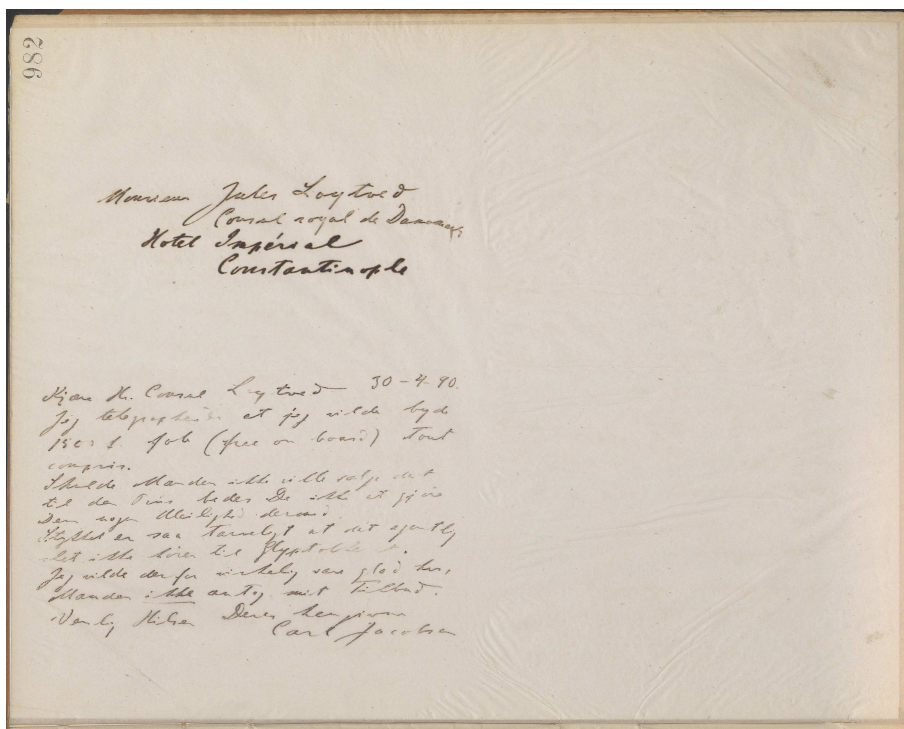 982
Monsieur Jules Løytved
Consul royal de Danemark
Hotel Impérial
Constantinople
30-4-90.
Kjære Hr. Consul Løytved
Jeg telegrapherede at jeg vilde byde
£ fob (free on board) tout
compris.
Skulde Manden ikke ville sælge det
til den Priis bedes De ikke at gjøre
Dem nogen Uleilighed derved.
Stykket er saa tarveligt at det egentlig
slet ikke hører til Glyptotheket.
Jeg vilde derfor virkelig være glad hvis
Manden ikke antog mit Tilbud.
Venlig Hilsen Deres hengivne
Carl Jacobsen